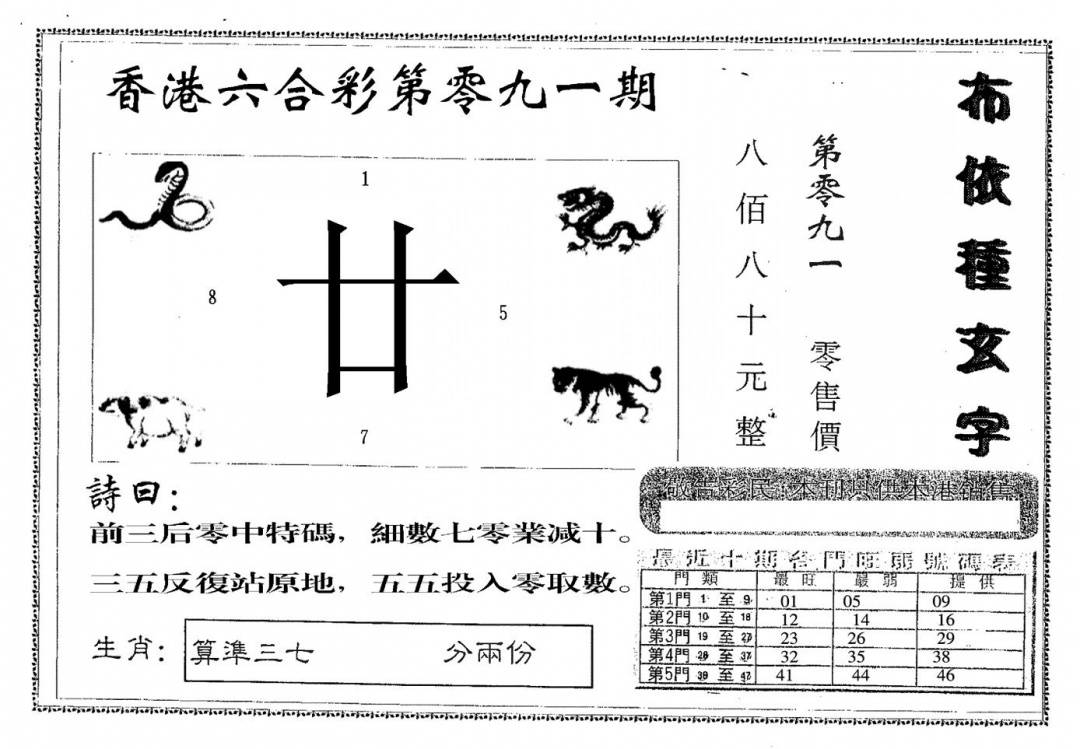 香港六合彩第零九一期
布依種玄字
第零九一 零售價
八佰八十元整
1
廿
8
5
7
詩曰：
前三后零中特碼，細數七零業减十。
三五反復站原地，五五投入零取數。
生肖：算準三七 分兩份
敬告彩民：本刊只供本港銷售
最近十期各門旺弱號碼表
門類 最旺 最弱 提供
第1門 1 至 9 01 05 09
第2門 10 至 18 12 14 16
第3門 19 至 27 23 26 29
第4門 28 至 37 32 35 38
第5門 38 至 47 41 44 46